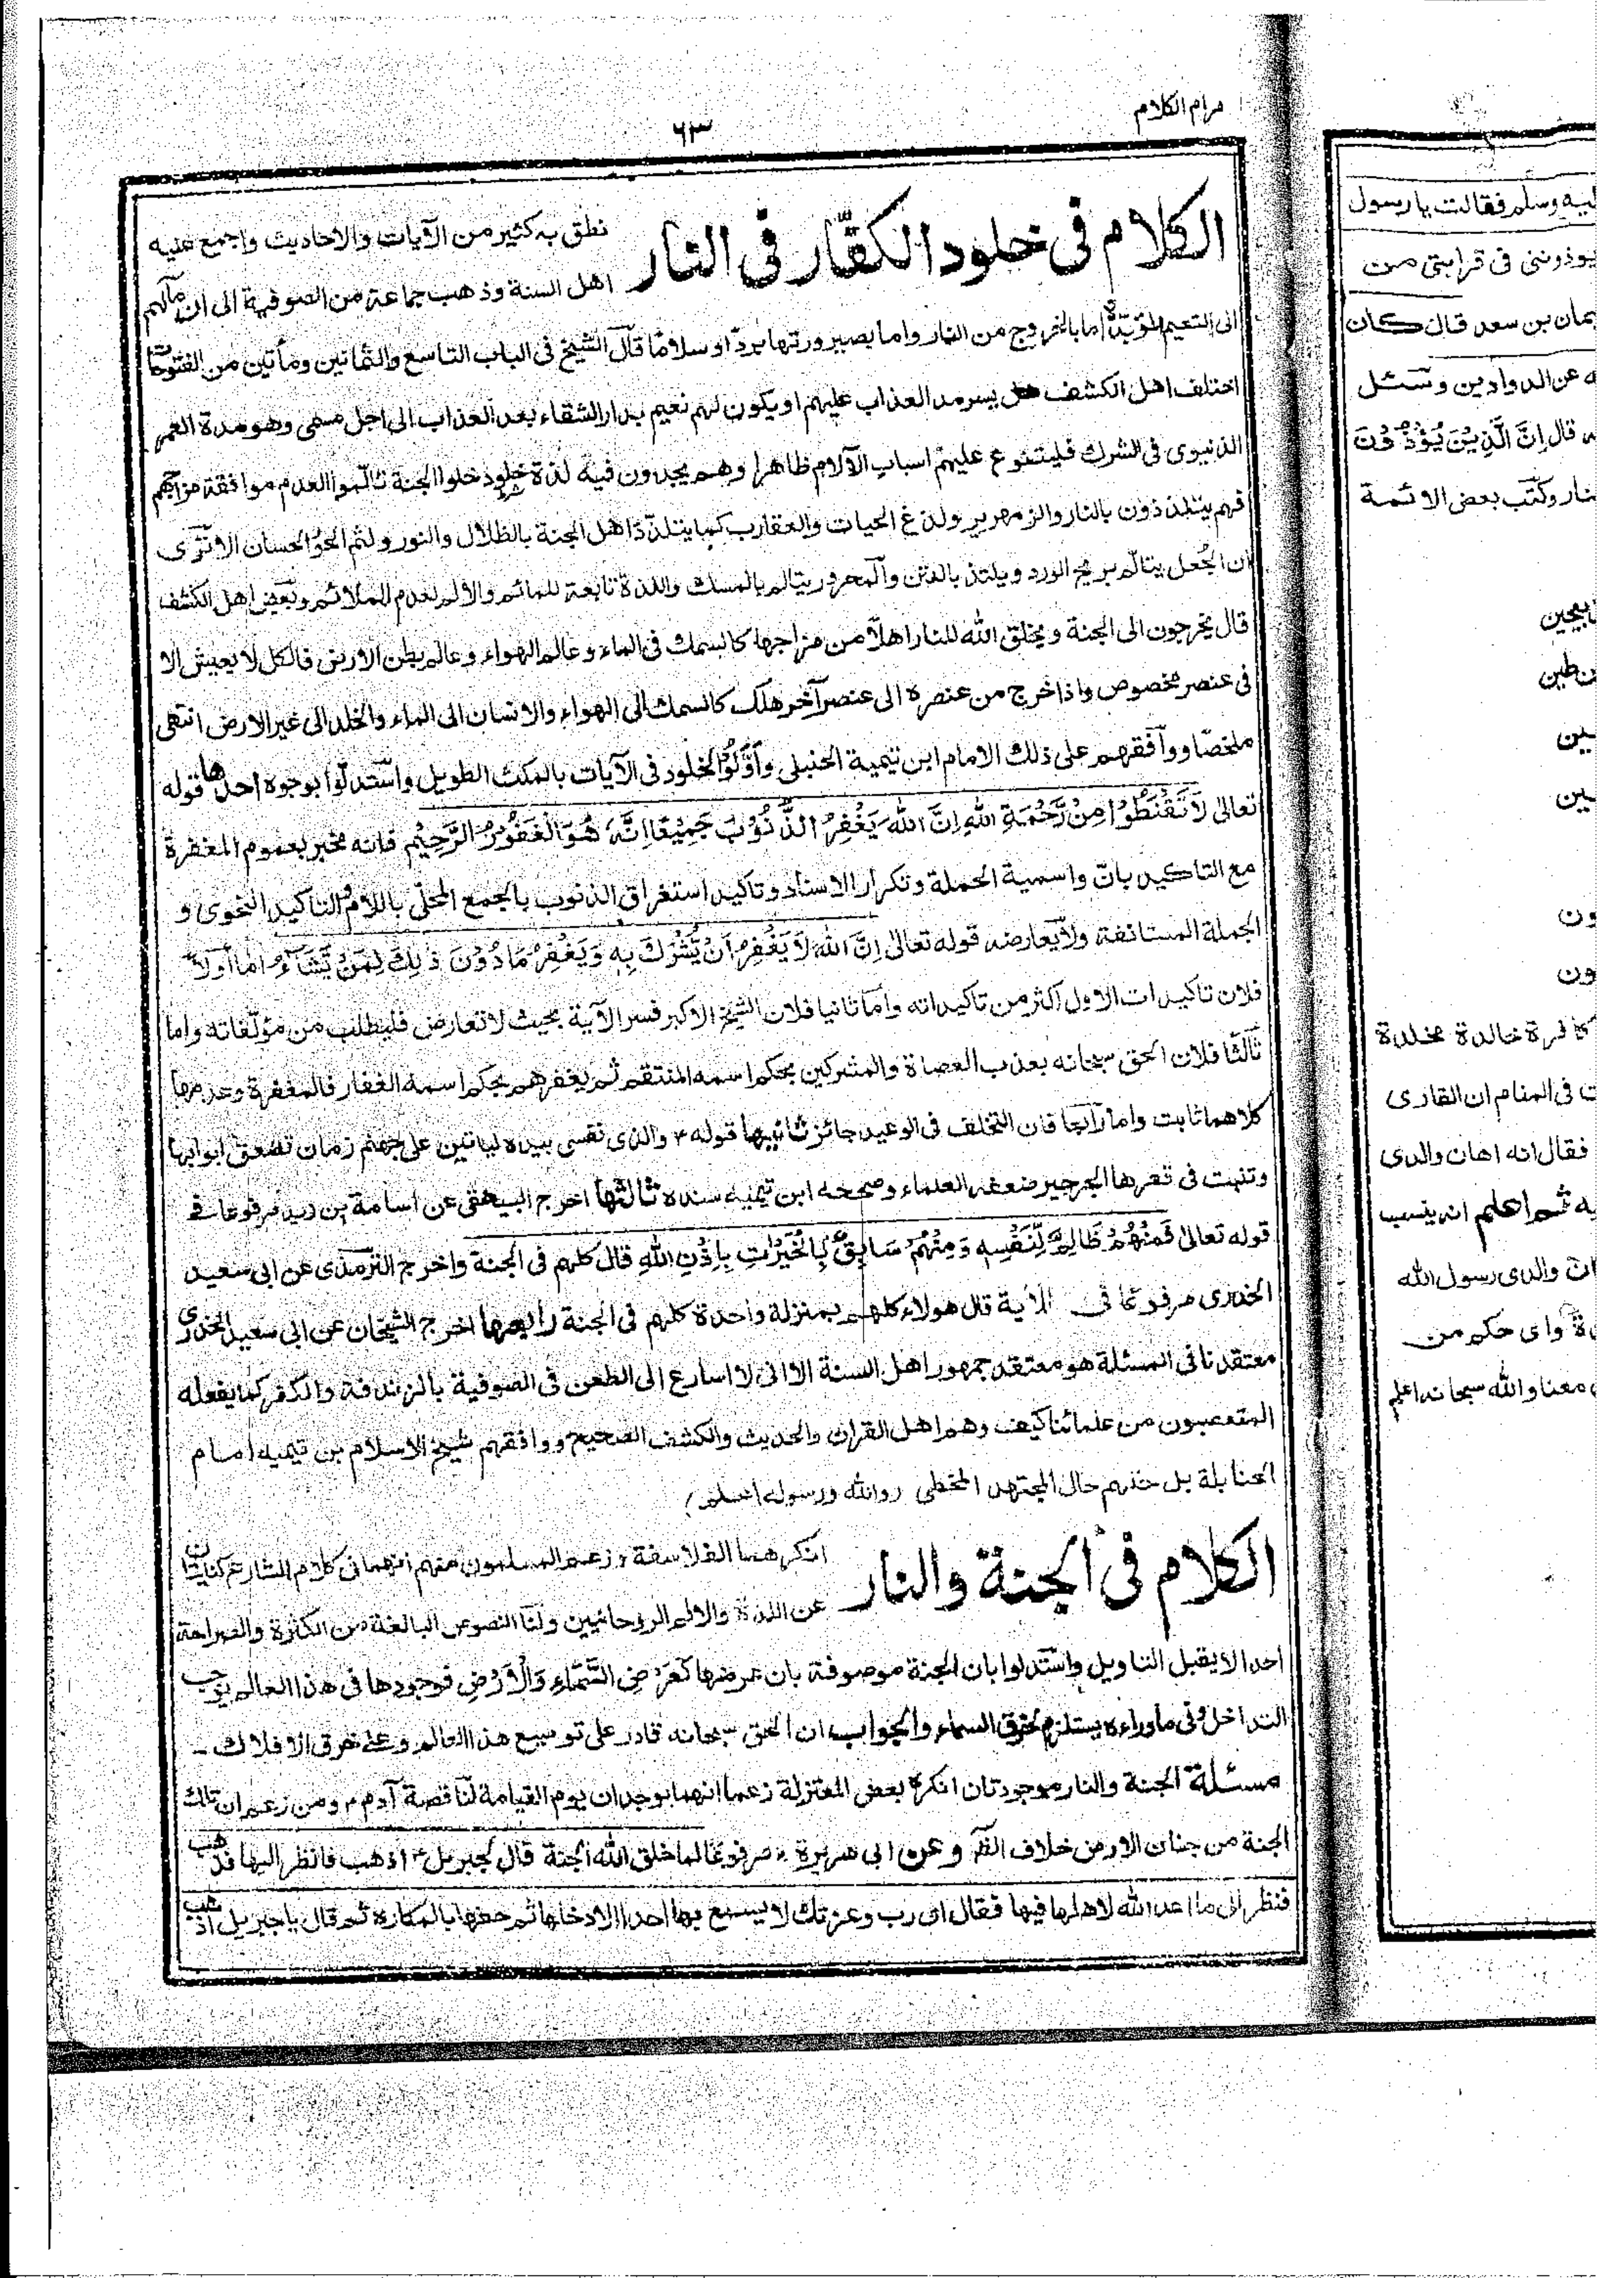 مرام الكلام
٦٣
الكلام فى خلود الكفّار فى النار
نطق به كثير من الآيات والاحاديث واجمع عليه
اهل السنة وذهب جماعة من الصوفية الى ان مآلهم
الى التعيم المؤبّدة اما بالخروج من النار واما بصيرورتها بردًا وسلامًا قال الشيخ فى الباب التاسع والثمانين ومأتين من الفتوحات
اختلف اهل الكشف هل يسرمد العذاب عليهم او يكون لهم نعيم بدار الشقاء بعد العذاب الى اجل مسمى وهو مدة العمر
الدنيوى فى الشرك فليتنوع عليهم اسباب الآلام ظاهرا وهم يجدون فيه لذة خلود خلوا الجنة تألّموا العدم موافقة مزاجهم
فهم يتلذذون بالنار والزمهرير ولدغ الحيات والعقارب كما يتلذّذ اهل الجنة بالظلال والنور ولثم الحوْ الحسان الا ترى
ان الجُعل يتالم بريح الورد ويلتذ بالنتن والمحرور يتالم بالمسك واللذة تابعة للملائم والالم لعدم الملائم وبعض اهل الكشف
قال يخرجون الى الجنة ويخلق الله للنار اهلًا من مزاجها كالسمك فى الماء وعالم الهواء وعالم بطن الارض فالكل لا يعيش الا
فى عنصر مخصوص واذا خرج من عنصره الى عنصر آخر هلك كالسمك الى الهواء والانسان الى الماء والخلد الى غير الارض انتهى
ملخصًا ووافقهم على ذلك الامام ابن تيمية الحنبلى وأوّلوا الخلود فى الآيات بالمكث الطويل واستدلّوا بوجوه احدها قوله
تعالى لَا تَقْنَطُوْا مِنْ رَّحْمَةِ اللهِ اِنَّ اللهَ يَغْفِرُ الذُّنُوْبَ جَمِيْعًا اِنَّهٗ هُوَ الْغَفُوْرُ الرَّحِيْمِ فانه مخبر بعموم المغفرة
مع التاكيد بانّ واسمية الجملة وتكرار الاسناد وتاكيد استغراق الذنوب بالجمع المحلّى باللام والتاكيد النحوى و
الجملة المستانفة ولا يعارضه قوله تعالى اِنَّ اللهَ لَا يَغْفِرُ اَنْ يُّشْرَكَ بِهٖ وَيَغْفِرُ مَا دُوْنَ ذٰلِكَ لِمَنْ يَّشَآءُ اما اولًا
فلان تاكيدات الاول اكثر من تاكيداته واما ثانيا فلان الشيخ الاكبر فسر الآية بحيث لا تعارض فليطلب من مؤلّفاته واما
ثالثًا فلان الحق سبحانه يعذب العصاة والمشركين بحكم اسمه المنتقم ثم يغفرهم بحكم اسمه الغفار فالمغفرة وعدمها
كلاهما ثابت واما رابعا فان التخلف فى الوعيد جائز ثانيها قوله ؑ والذى نفسى بيده لياتين على جهنم زمان تصفق ابوابها
وتنبت فى قعرها الجرجير ضعفه العلماء وصححه ابن تيميه سنده ثالثها اخرج البيهقى عن اسامة بن زيد مرفوعا فى
قوله تعالى فَمِنْهُمْ ظَالِمٌ لِّنَفْسِهٖ وَمِنْهُمْ سَابِقٌ بِالْخَيْرَاتِ بِاِذْنِ اللهِ قال كلهم فى الجنة واخرج الترمذى عن ابى سعيد
الخدرى مرفوعًا فى الآية قال هولاء كلهم بمنزلة واحدة كلهم فى الجنة رابعها اخرج الشيخان عن ابى سعيد الخدرى
معتقدنا فى المسئلة هو معتقد جمهور اهل السنة الا انى لا اسارع الى الطعن فى الصوفية بالزندقة والكفر كما يفعله
المتعصبون من علمائنا كيف وهم اهل القران والحديث والكشف الصحيح ووافقهم شيخ الاسلام بن تيميه امام
الحنابلة بل حالهم حال المجتهد المخطى (والله ورسوله اعلم)
الكلام فى الجنة والنار
انكرهما الفلاسفة وزعم المسلمون منهم انهما فى كلام الشارع كنايتان
عن اللذة والالم الروحانيين ولنا النصوص البالغة من الكثرة والصراحة
احدا لا يقبل التاويل واستدلوا بان الجنة موصوفة بان عرضها كَعَرْضِ السَّمَاءِ وَالْاَرْضِ فوجودها فى هذا العالم يوجب
التداخل وفى ماوراءه يستلزم خرق السماء والجواب ان الحق سبحانه قادر على توسيع هذا العالم وعلى خرق الافلاك -
مسئلة الجنة والنار موجودتان انكره بعض المعتزلة زعما انهما يوجدان يوم القيامة لنا قصة آدم ؑ ومن زعم ان تلك
الجنة من جنان الارض خلاف الظ وعن ابى هريرة ؓ مرفوعًا لما خلق الله الجنة قال لجبريل ؑ اذهب فانظر اليها فذهب
فنظر الى ما اعد الله لاهلها فيها فقال اى رب وعزتك لا يسمع بها احد الا دخلها ثم حفها بالمكاره ثم قال يا جبريل اذهب
ليه وسلم فقالت يا رسول
يوذوننى فى قرابتى من
يمان بن سعد قال كان
ه عن الدوادين وسئل
ه قال اِنَّ الَّذِيْنَ يُؤْذُوْنَ
نار وكتب بعض الائمة
طين
ين
ين
ون
ون
كافرة خالدة مخلدة
ت فى المنام ان القارى
فقال انه اهان والدى
يه ثم اعلم انه ينسب
ان والدى رسول الله
ة واى حكم من
معنا والله سبحانه اعلم